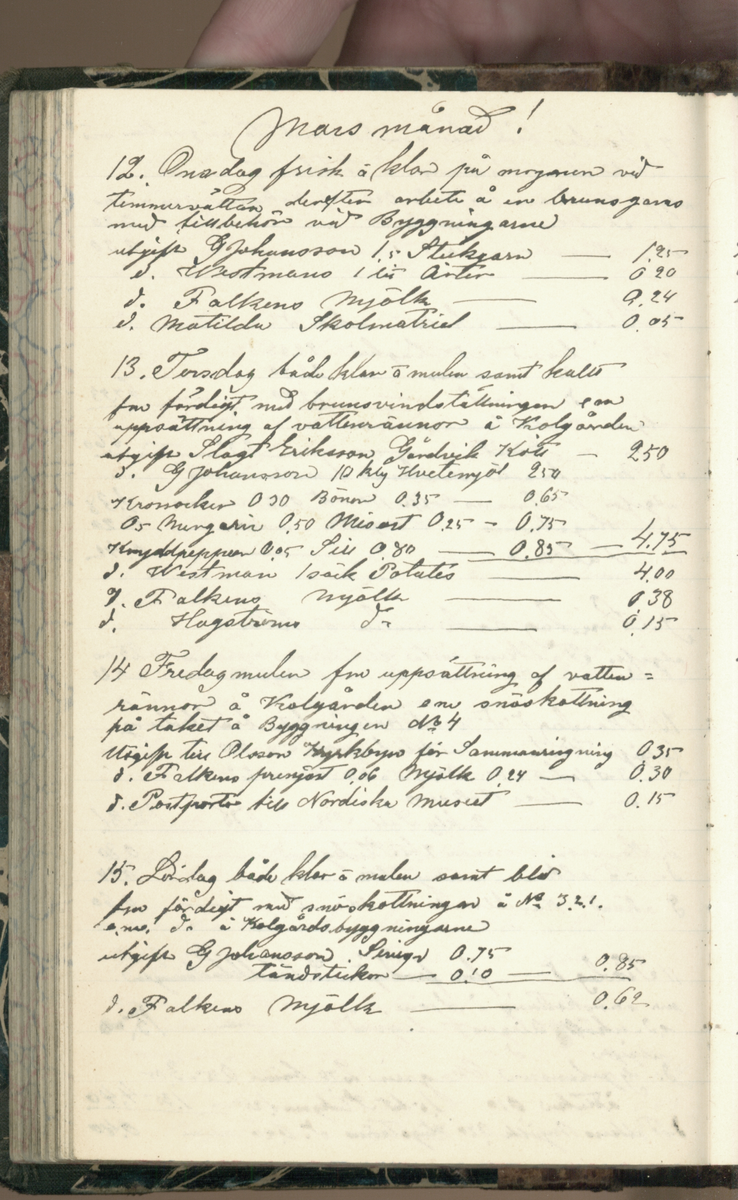 Mars månad!
12. Onsdag frisk å klar på morgonen vid
timmervältan derefter arbete å en brunsgans
med tillbehör vid Byggningarne
utgift G Johansson 1,5 Stekgarn — 1,25
d. Westmans 1 lit Ärter — 0 20
d. Falkens Mjölk — 0.24
d. Matilda Skolmatriel — 0.05
13. Torsdag både klar å mulen samt kallt
fm färdigt med brunsvindställningen em
uppsättning af vattenrännor å Kolgården
utgift Slagt Eriksson Gärdvik Kött — 250
d. G Johansson 10 klg Hvetemjöl 250
Kronocker 0 30 Bönor 0.35 — 0.65
05 Margarin 0,50 Misost 0.25 — 0.75
Kryddpeppar 0,05 Sill 0.80 — 0.85 — 4.75
d. Westman 1 säck Potates — 4.00
d. Falkens Mjölk — 0.38
d. Hagströms d:o — 0.15
14 Fredag mulen fm uppsättning af vatten=
rännor å Kolgården em snöskottning
på taket å Byggningen No 4
Utgift till Olsson Kyrkbyn för Sammanringning 0.35
d. Falkens 0,06 Mjölk 0,24 — 0.30
d. Postporto till Nordiska Museet — 0.15
15. Lördag både klar å mulen samt blid
fm färdigt med snöskottningen å No 3.2.1.
e.m. d:o å Kolgårdsbyggningarne
utgift G Johansson 0.75
tändstickor — 0.10 — 0.85
d. Falkens Mjölk — 0.62